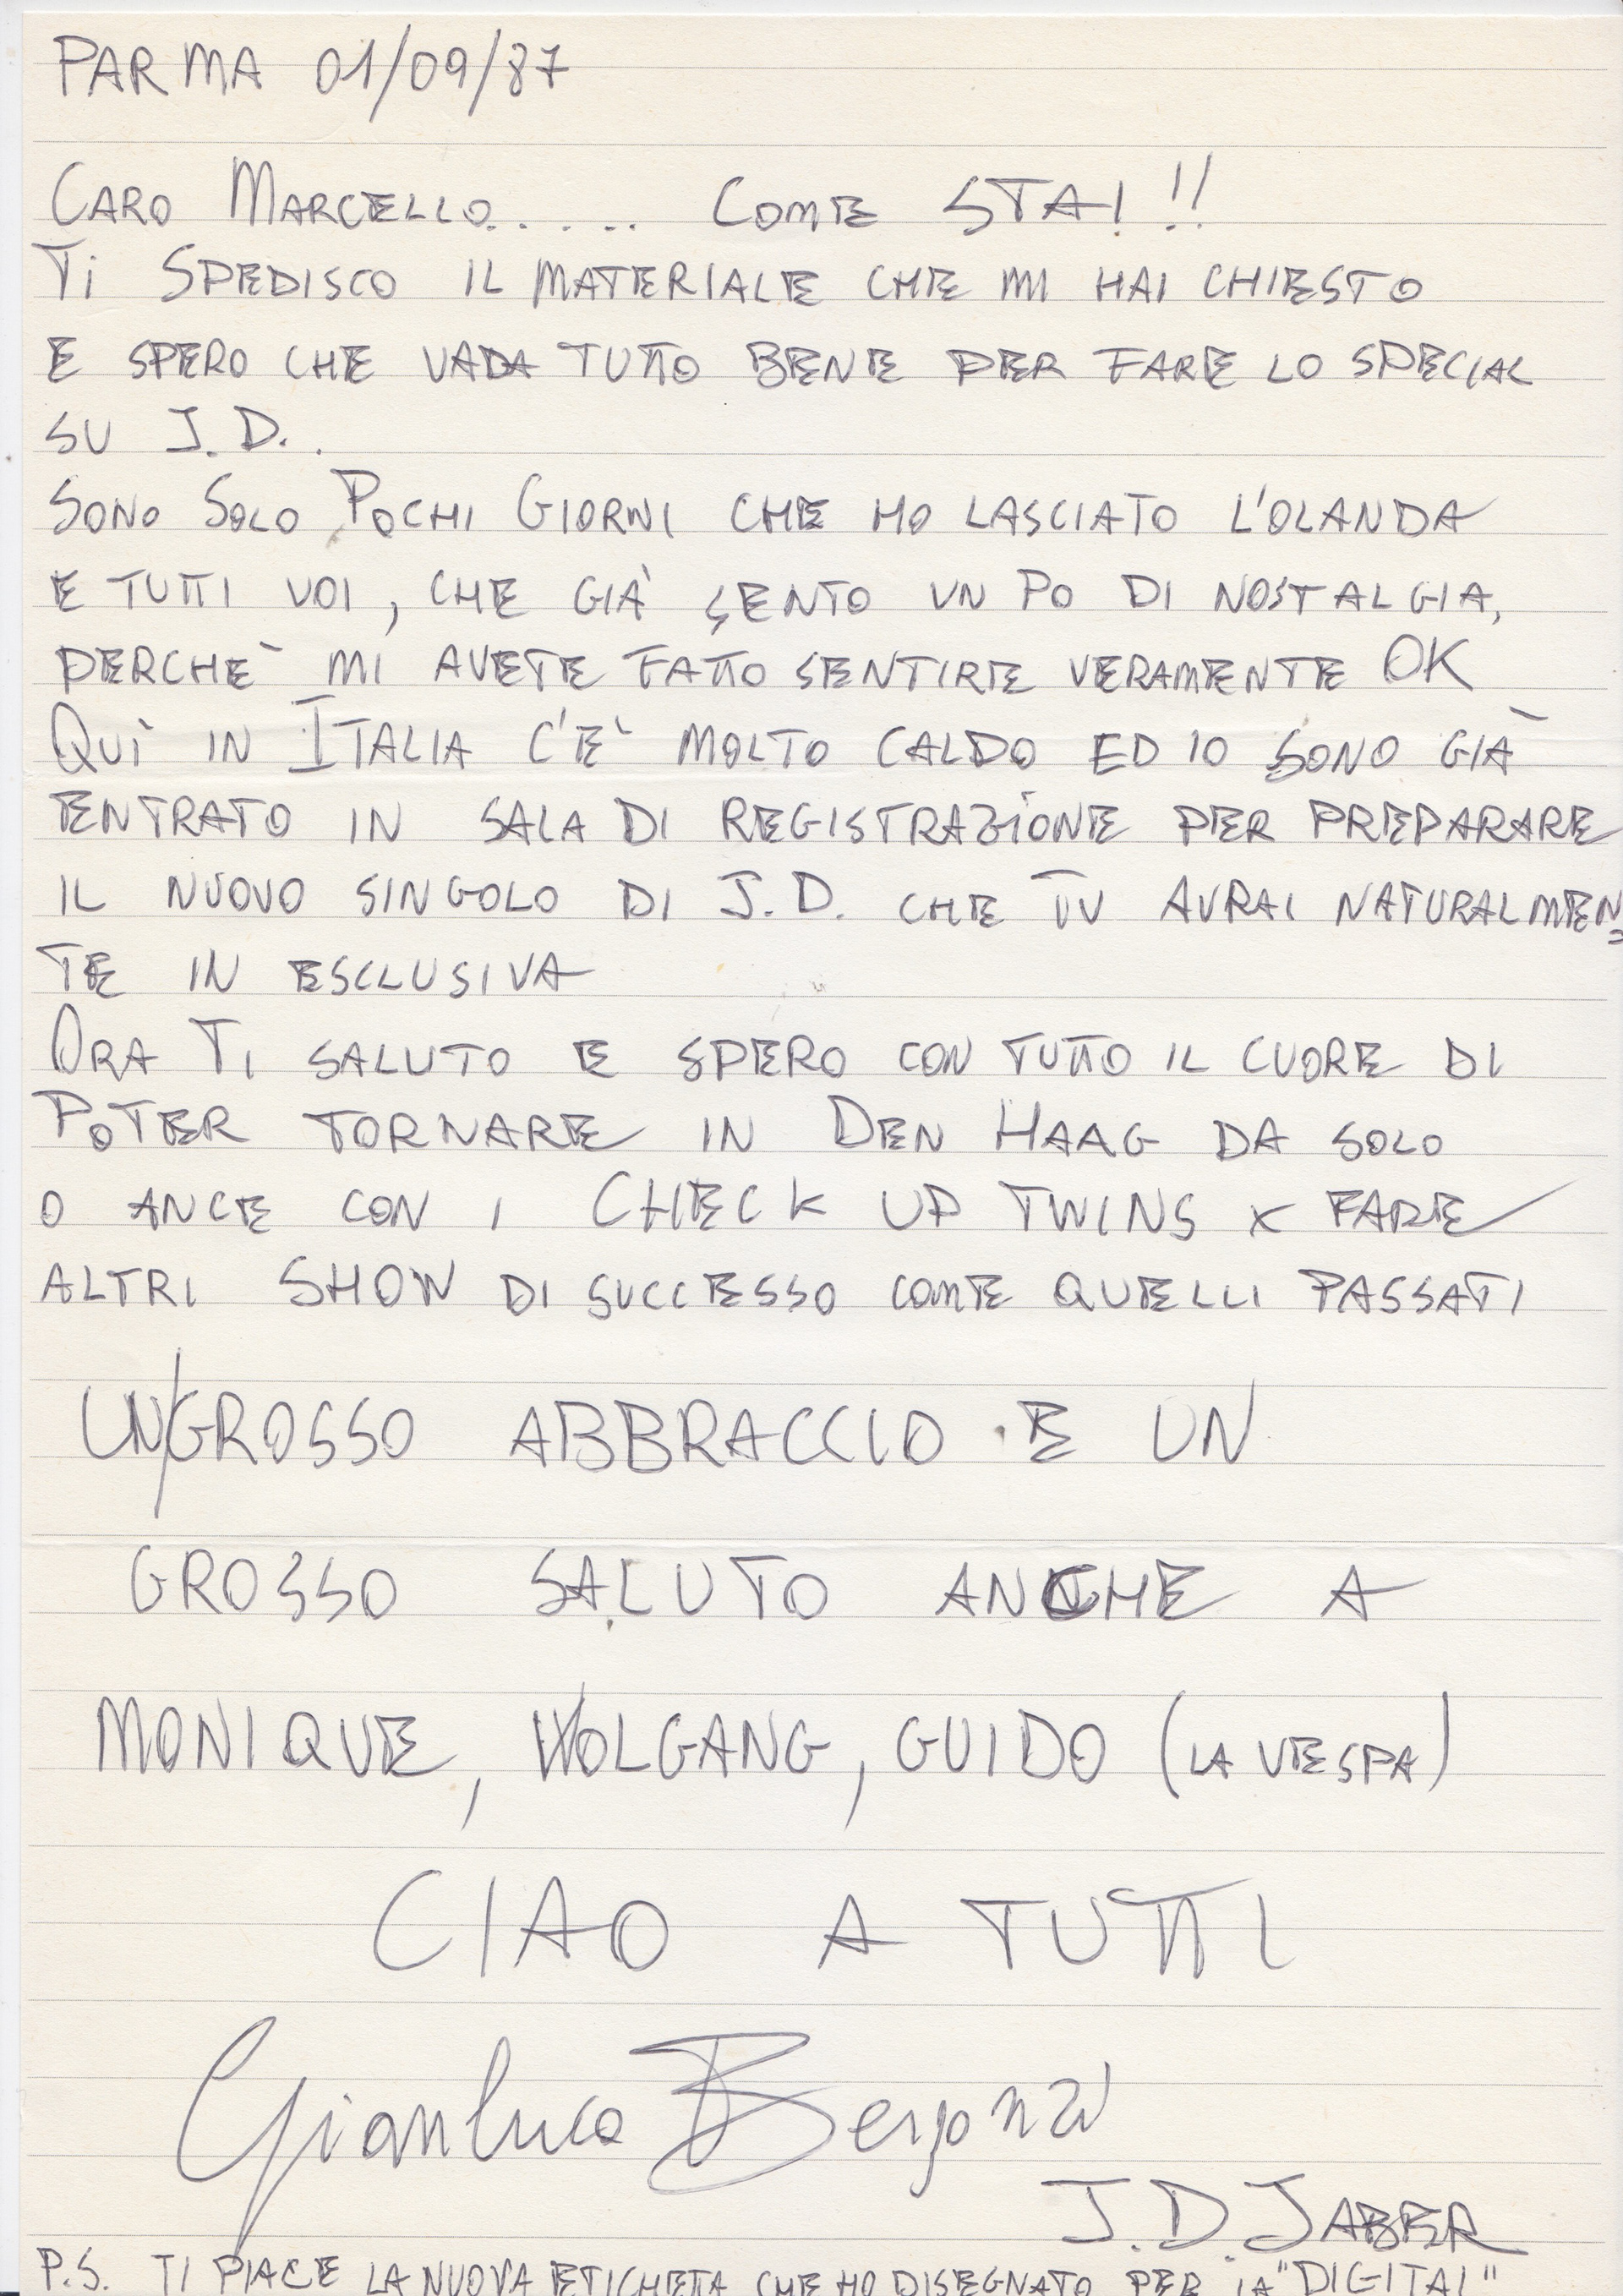 PARMA 01/09/87
CARO MARCELLO..... COME STAI!!
TI SPEDISCO IL MATERIALE CHE MI HAI CHIESTO
E SPERO CHE VADA TUTTO BENE PER FARE LO SPECIAL
SU J.D..
SONO SOLO POCHI GIORNI CHE HO LASCIATO L'OLANDA
E TUTTI VOI, CHE GIÀ SENTO UN PO DI NOSTALGIA,
PERCHÈ MI AVETE FATTO SENTIRE VERAMENTE OK
QUÌ IN ITALIA C'È MOLTO CALDO ED IO SONO GIÀ
ENTRATO IN SALA DI REGISTRAZIONE PER PREPARARE
IL NUOVO SINGOLO DI J.D. CHE TU AVRAI NATURALMEN=
TE IN ESCLUSIVA
ORA TI SALUTO E SPERO CON TUTTO IL CUORE DI
POTER TORNARE IN DEN HAAG DA SOLO
O ANCE CON I CHECK UP TWINS x FARE
ALTRI SHOW DI SUCCESSO COME QUELLI PASSATI
UN/GROSSO ABBRACCIO E UN
GROSSO SALUTO ANCHE A
MONIQUE, WOLGANG, GUIDO (LA VESPA)
CIAO A TUTTI
Gianluca Bergonzi
J.D. JABER
P.S. TI PIACE LA NUOVA ETICHETTA CHE HO DISEGNATO PER LA "DIGITAL"